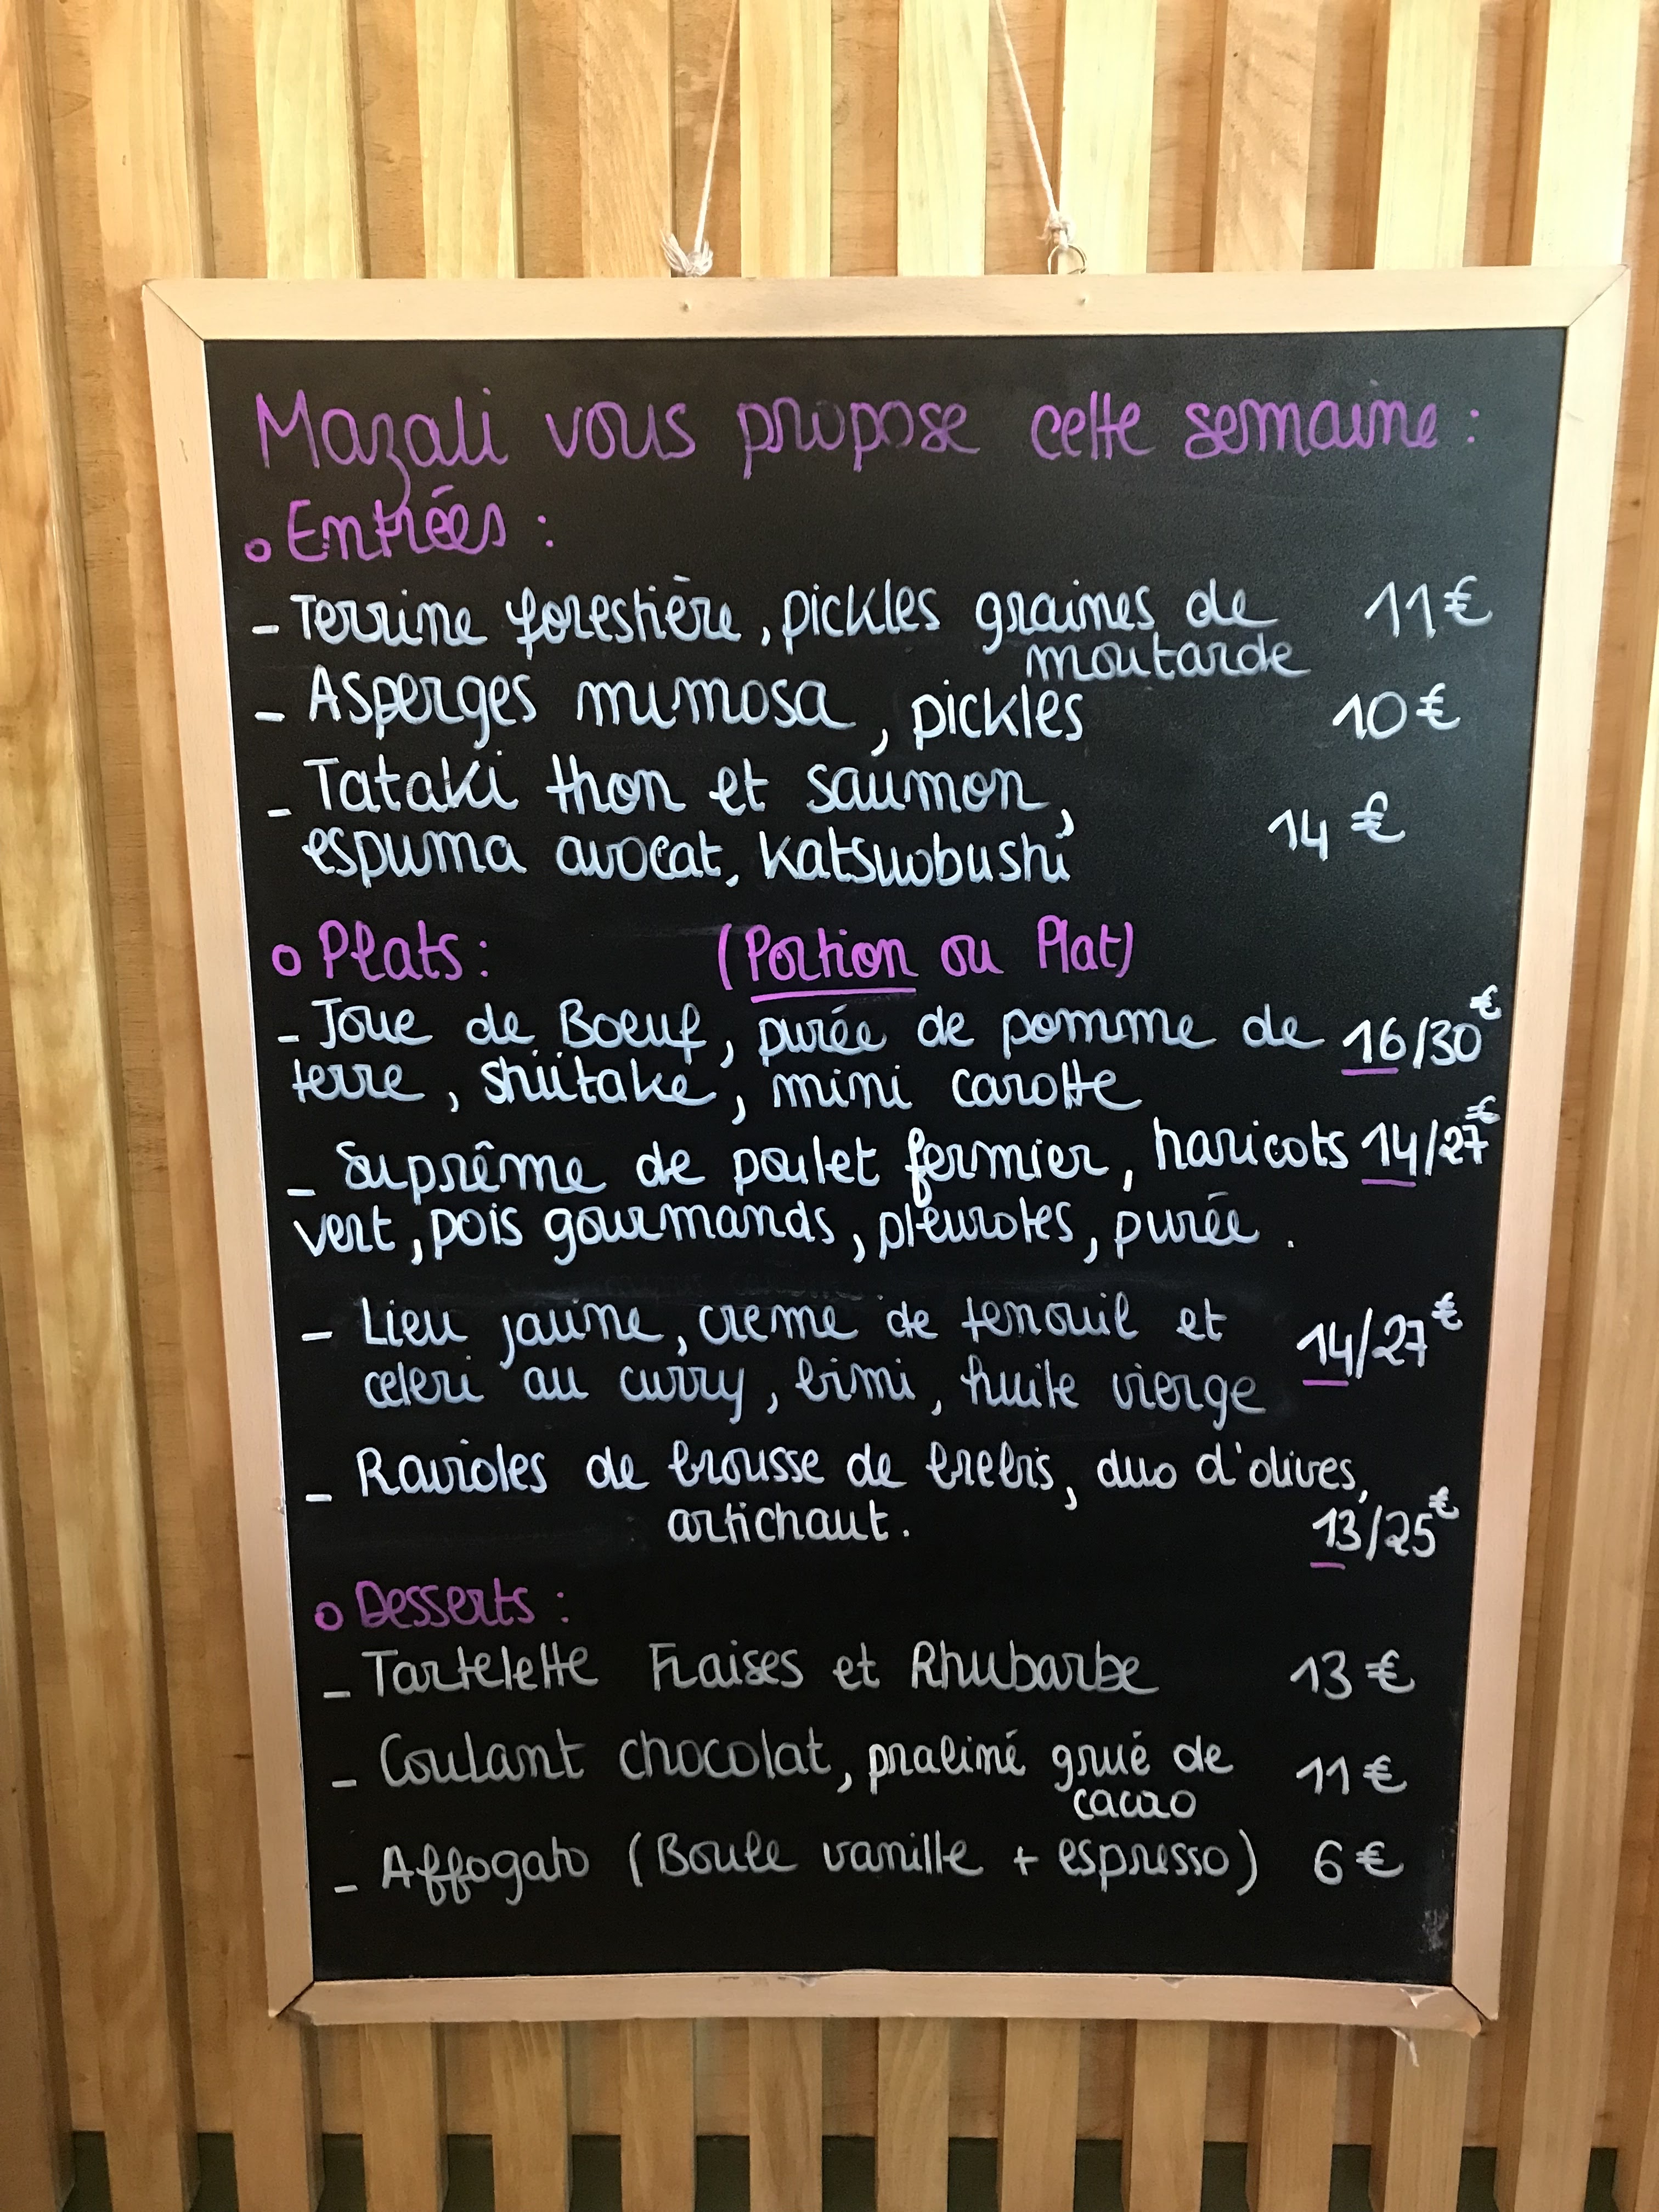 Mazali vous propose cette semaine :
o Entrées :
- Terrine forestière, pickles graines de 11€
moutarde
- Asperges mimosa, pickles 10€
- Tataki thon et saumon, 14 €
espuma avocat, Katsuobushi
o Plats : (Portion ou Plat)
- Joue de Boeuf, purée de pomme de 16/30€
terre, shiitake, mini carotte
- Suprême de poulet fermier, haricots 14/27€
vert, pois gourmands, pleurotes, purée.
- Lieu jaune, creme de fenouil et 14/27€
celeri au curry, bimi, huile vierge
- Ravioles de brousse de brebis, duo d'olives,
artichaut. 13/25€
o Desserts :
- Tartelette Fraises et Rhubarbe 13 €
- Coulant chocolat, praliné grué de 11 €
cacao
- Affogato (Boule vanille + espresso) 6 €